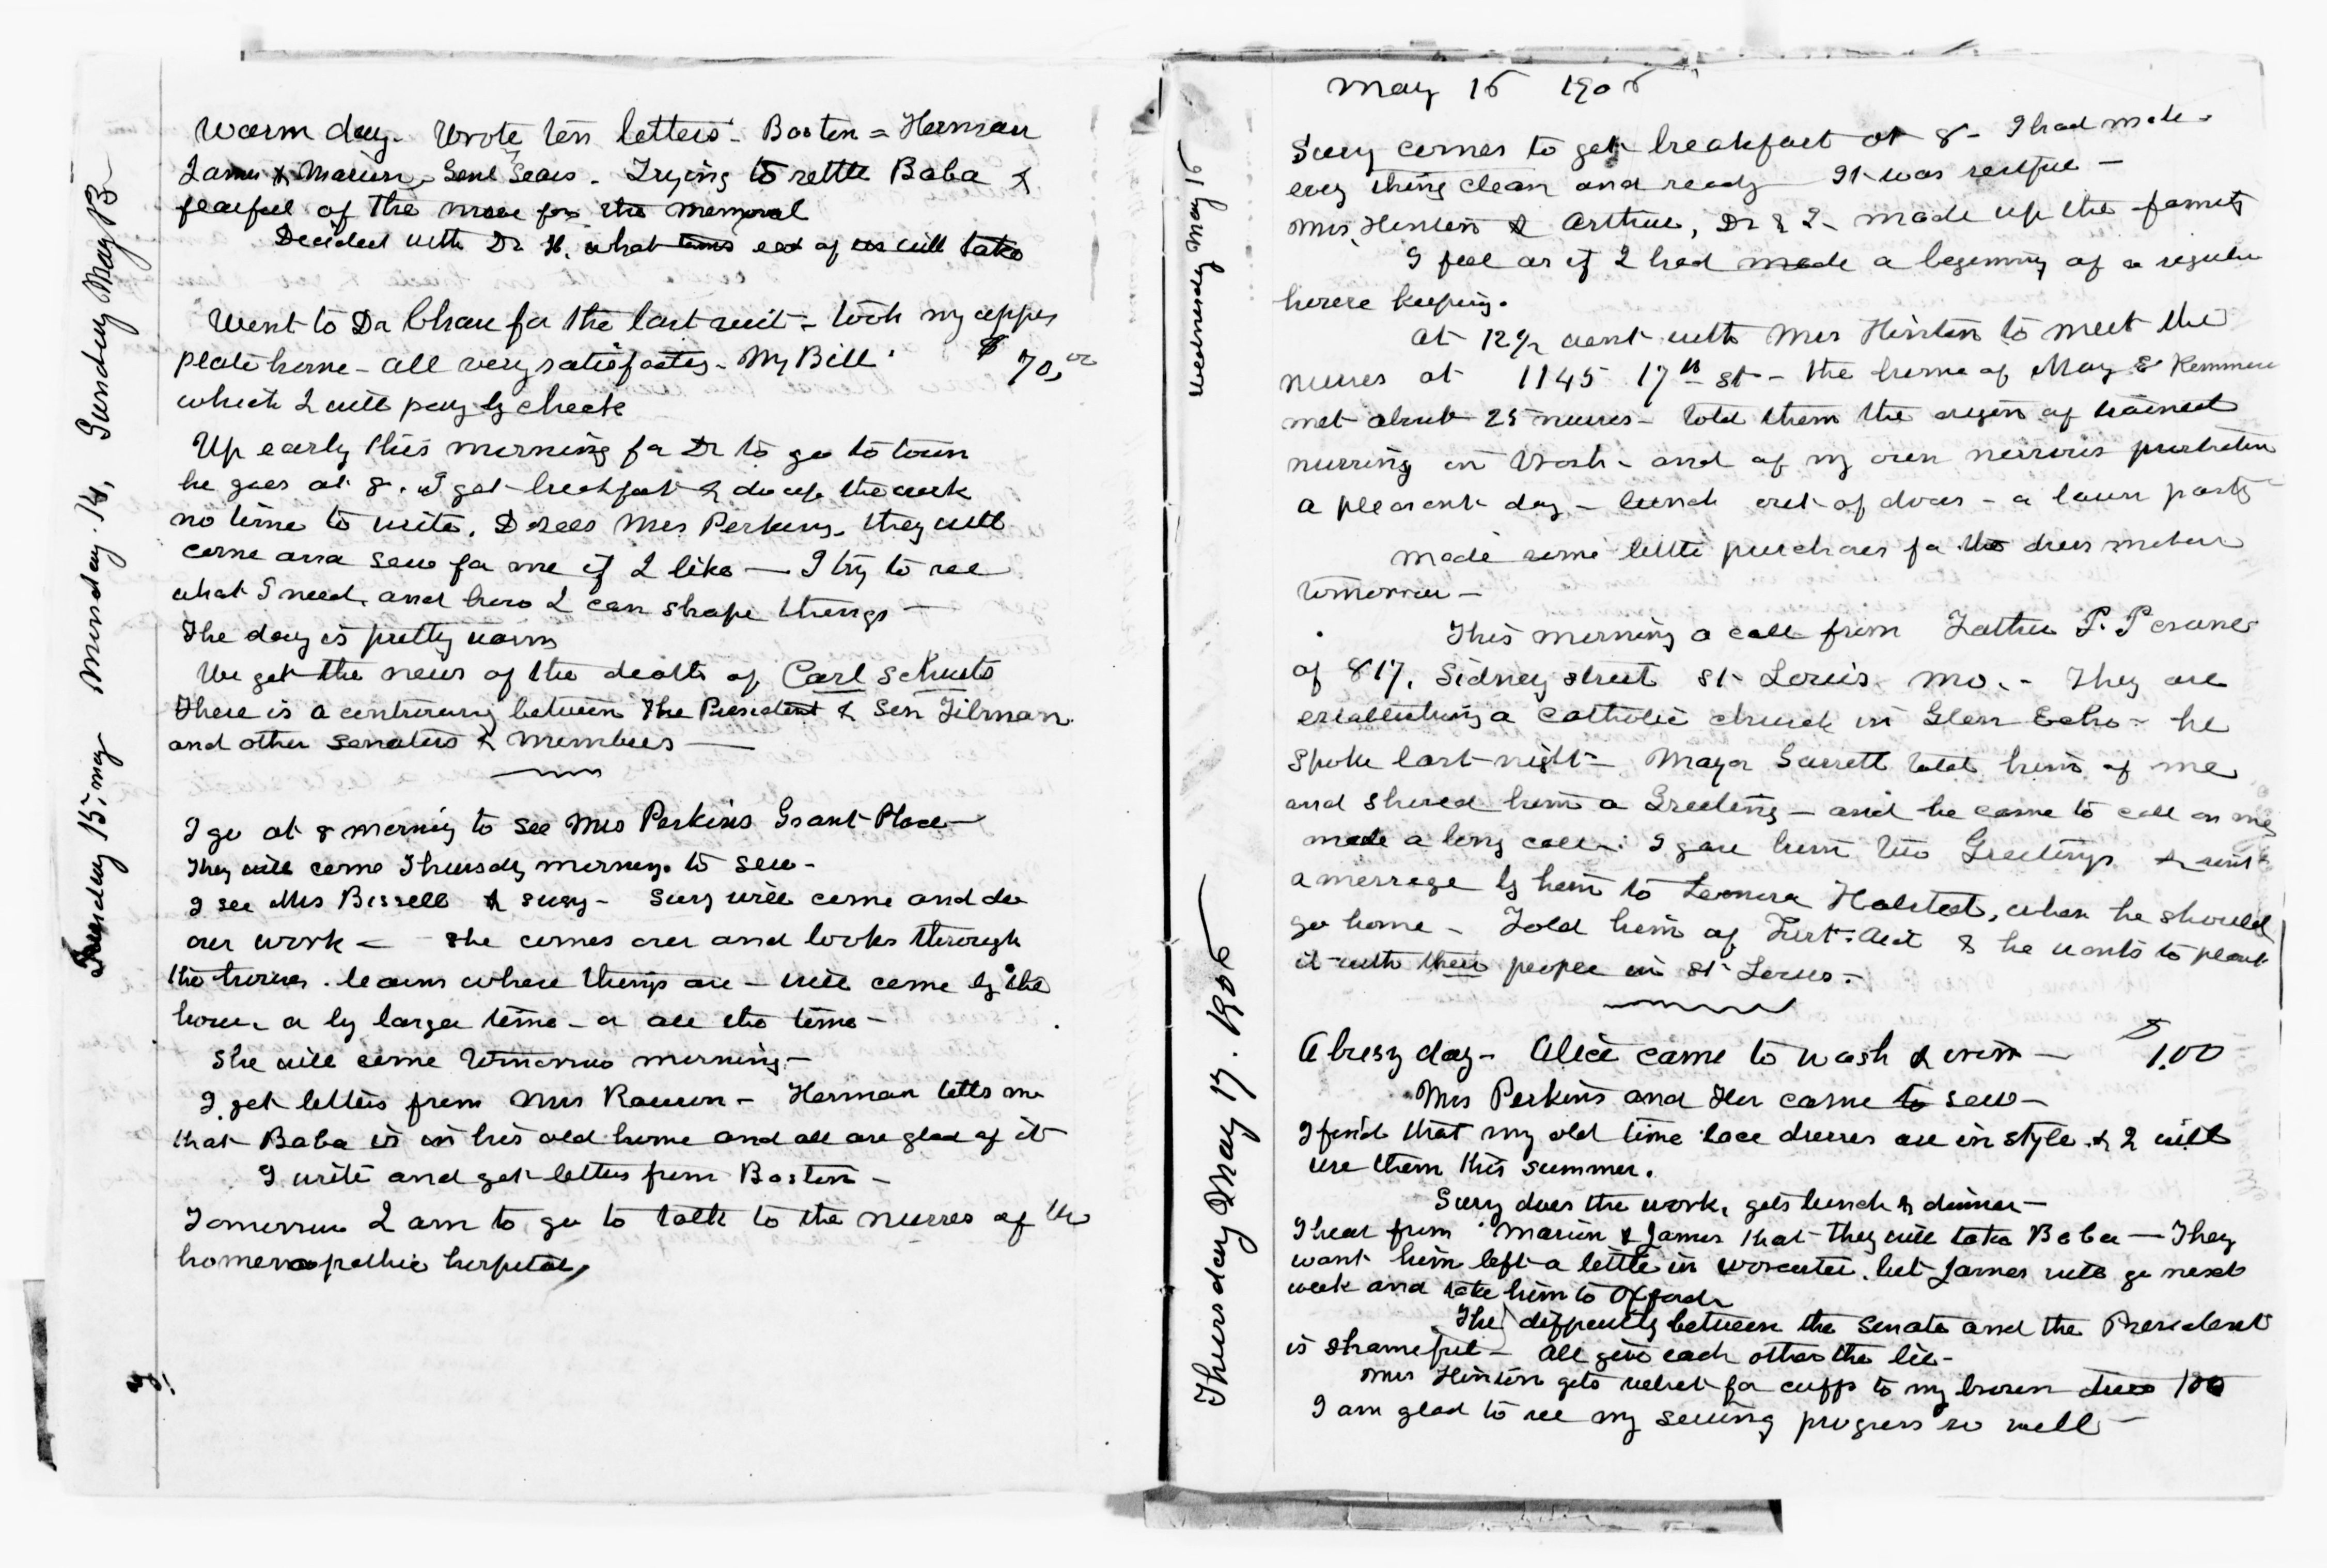 Sunday May 13
Warm day. Wrote ten letters - Boston = Herman
James & Marion, Genl Sears - Trying to settle Baba &
fearful of the move for the memorial
Decided with Dr H. what each of us will take
Monday. 14,
Went to Dr Chase for the last suit - took my upper
plate home - all very satisfactory - My Bill $70,00
which I will pay by check
Up early this morning for Dr to go to town
he goes at 8. I get breakfast & do up the work
no time to write. Dr sees Mrs Perkins. they will
come and sew for me if I like — I try to see
what I need, and how I can shape things —
The day is pretty warm
We get the news of the death of Carl Schurts
There is a controversy between The President & Sen Tilman
and other Senators & members —
Tuesday 15, may
I go at 8 morning to see Mrs Perkins Grant Place —
They will come Thursday morning to sew -
I see Mrs Bissell & Susy - Susy will come and do
our work — She comes over and looks through
the house. learns where things are - will come by the
hour, or by larger time - or all the time -
She will come tomorrow morning -
I get letters from Mrs - Herman tells me
that Baba is in his old home and all are glad of it
I write and get letters from Boston -
Tomorrow I am to go to talk to the nurses of the
homeopathic hospital,
May 16 1906
Wednesday May 16
Susy comes to get breakfast at 8 - I had made
every thing clean and ready It was restful -
Mrs, Hinton & Arthur, Dr & I - made up the family
I feel as if I had made a beginning of a regular
house keeping.
At 12 1/2 went with Mrs Hinton to meet the
nurses at 1145 17th st - the home of May E
met about 25 nurses - told them the origin of trained
nursing in Wash - and of my own nervous prostration
a pleasant day - lunch out of doors - a lawn party
Made some little purchases for the dress makers
tomorrow -
This morning a call from Father P.
of 817, Sidney street St Louis Mo. - They are
establishing a Catholic church in Glen Echo - he
spoke last night - Mayor Garrett told him of me
and showed him a Greeting - and he came to call on me
made a long call. I gave him two Greetings & sent
a message by him to Leonora Halsted, when he should
go home - Told him of First Aid & he wants to plant
it with their people in St Louis -
Thursday May 17. 1906
A busy day - Alice came to wash & iron - $1.00
Mrs Perkins and Her came to sew -
I find that my old time lace dresses are in style. & I will
use them this summer.
Susy does the work, gets lunch & dinner -
I hear from Marion & James that they will take Baba — They
want him left a little in Worcester. but James will go next
week and take him to Oxford
The difficulty between the Senate and the President
is shameful - All give each other the lie -
Mrs Hinton gets velvet for cuffs to my brown dress 100
I am glad to see my sewing progress so well -